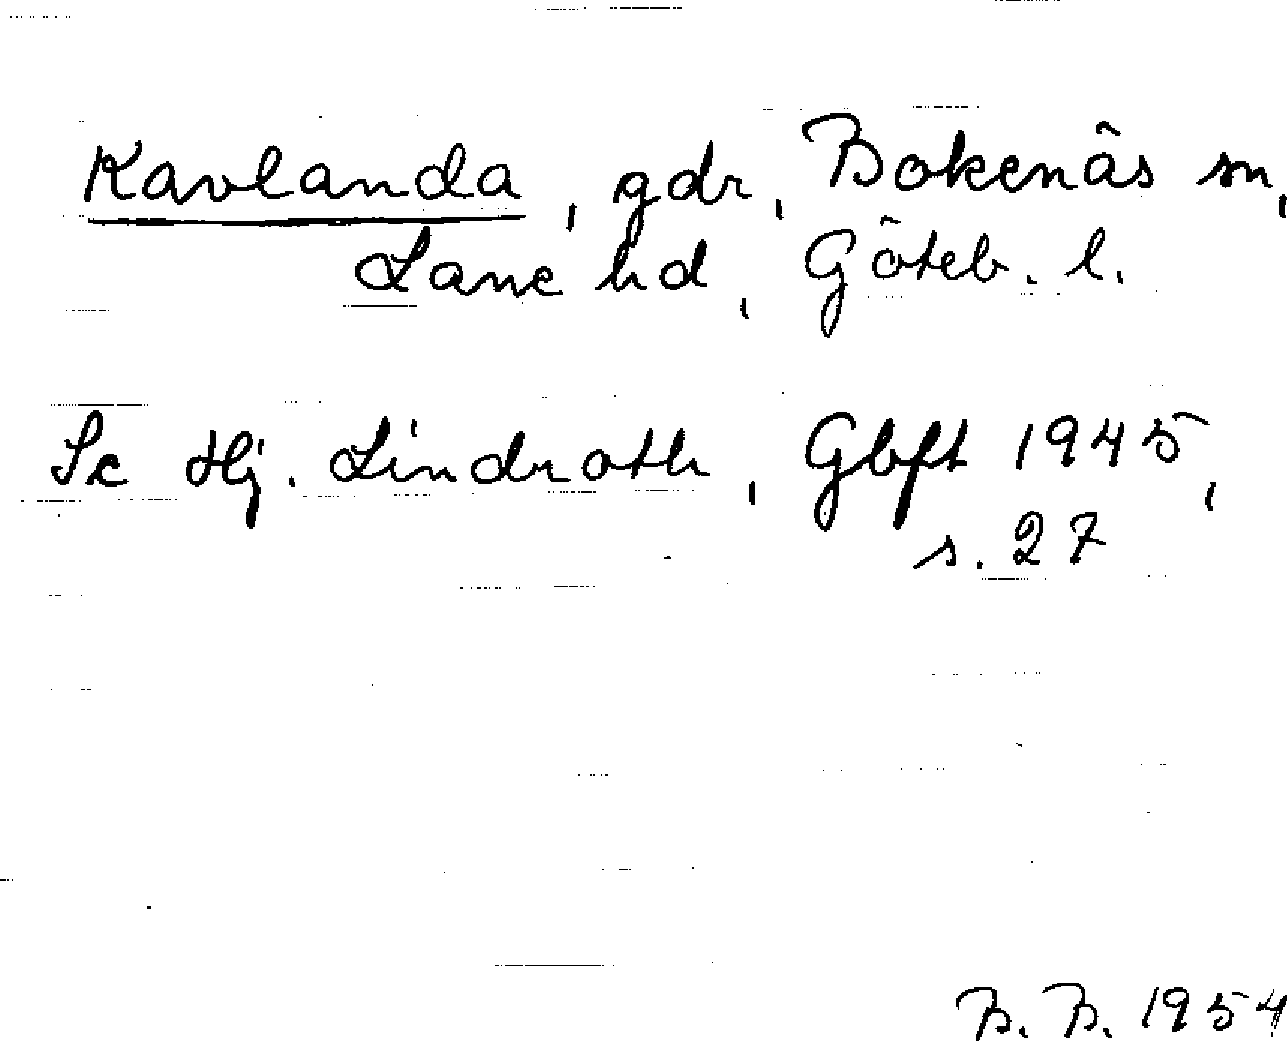 Kavlanda, gdr, Bokenäs sn,
Lane hd, Göteb. l.
Se Hj. Lindroth, Gbft 1945,
s. 27
B. B. 1954